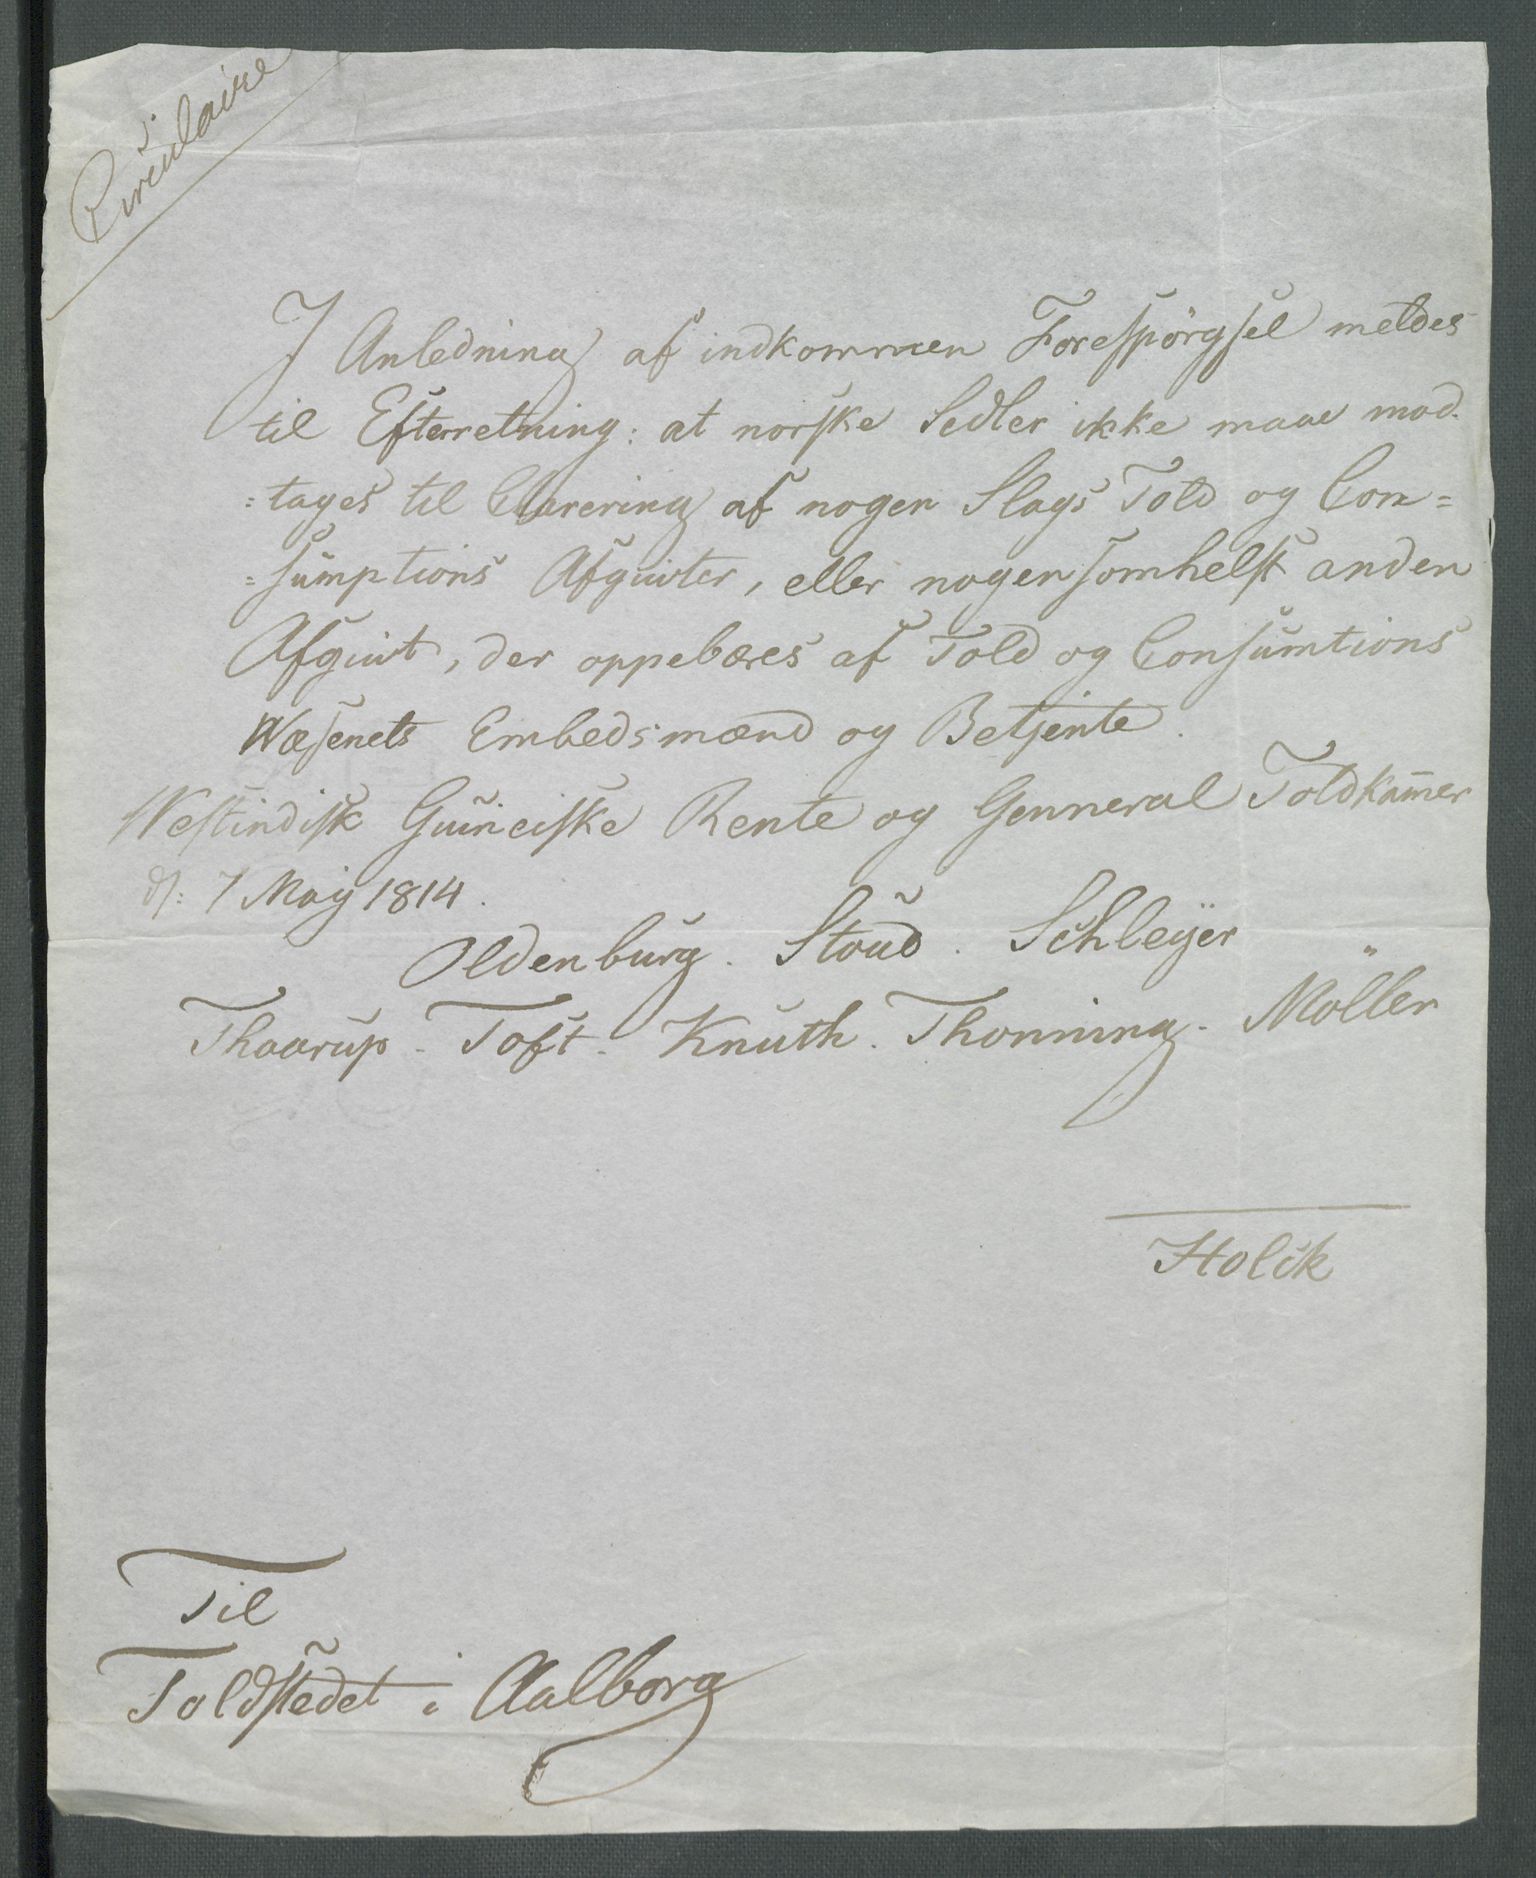 Circulaire
I Anledning af indkommen Forespörgsel meldes
til Efterretning: at norske Sedler ikke maae mod-
=tages til Clarering af nogen Slags Told og Con=
=sumptions Afgivter, eller nogensomhelst anden
Afgivt, der oppebæres af Told og Consumtions
Wæsenets Embedsmænd og Betjente.
Westindisk Guineiske Rente og Genneral Toldkam̄er
d: 7 May 1814.
Oldenburg. Stoud. Schleÿer
Thaarup - Toft - Knuth. Thonning. Möller
Holck
Til
Toldstedet i Aalborg